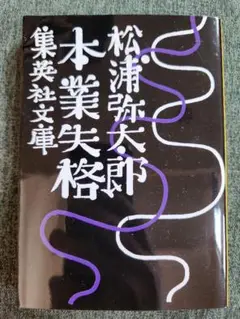 松浦弥太郎
本業失格
集英社文庫